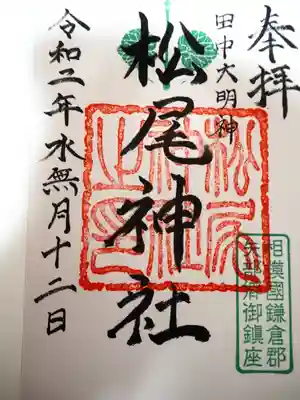 奉拝
田中大明神
松尾神社
令和二年水無月十二日
松尾神社之印
相模國鎌倉郡
御鎮座